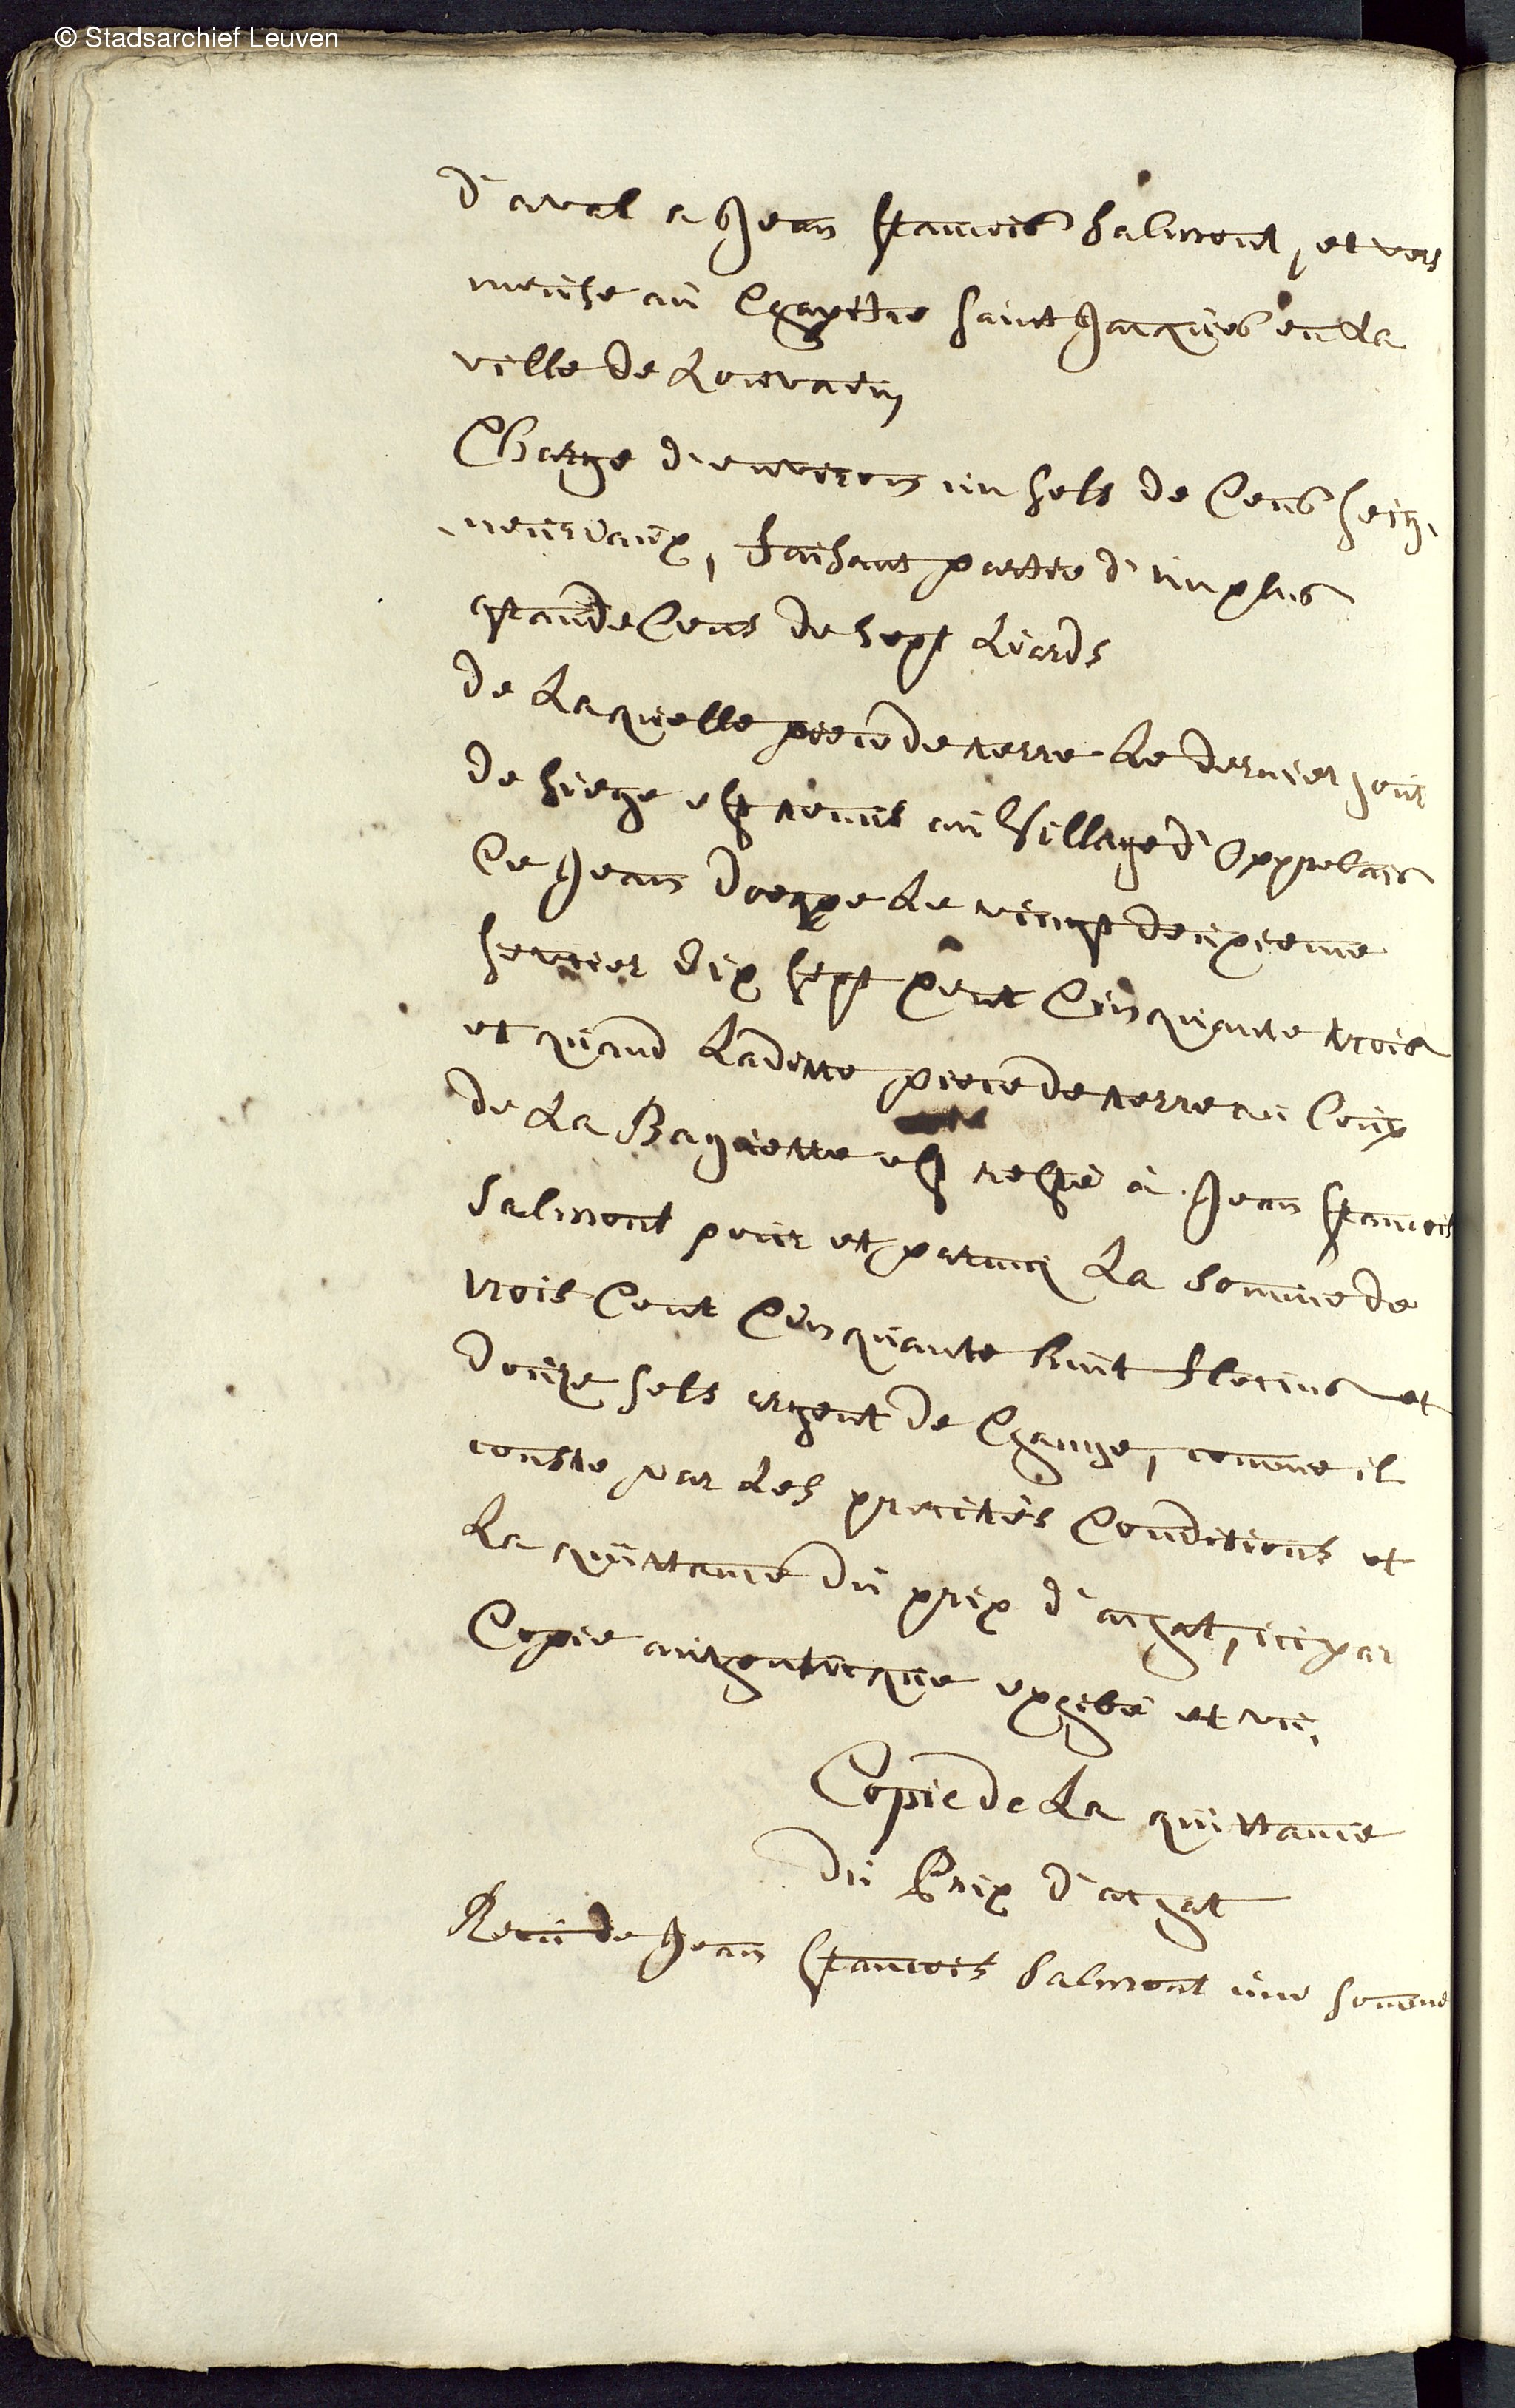 © Stadsarchief Leuven
d'aval a Jean francois Salmont, et vers
meuse au Chapittre Saint Jacques en La
ville de Louvain
Charge d'environ un sols de Cens seig-
neuriaux, faisant partie d'un plus
grande Cens de sept Liards
de Laquelle piece de terre Le dernier jour
de siege est tenus au Village d'Opprebais
Ce Jean Le vingt deuxieme
fevrier dix sept Cent Cinquante trois
et quand Laditte piece de terre au Coup
de La Baguette est resté à Jean francois
Salmont pour et parmy La Somme de
trois Cent Cinquante huit florins et
douze sols argent de Change, comme il
conste par Les precités Conditions et
La quittance du prix d'achat, ici par
Copie authenticque exhibé et vu,
Copie de La quittance
du Prix d'achat
Recu de Jean francois Salmont une somme